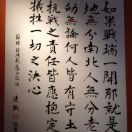 如果戰端一開那就是
地無分南北人無分老
幼無論何人皆有守土
抗戰之責任皆應抱定
犧牲一切之決心